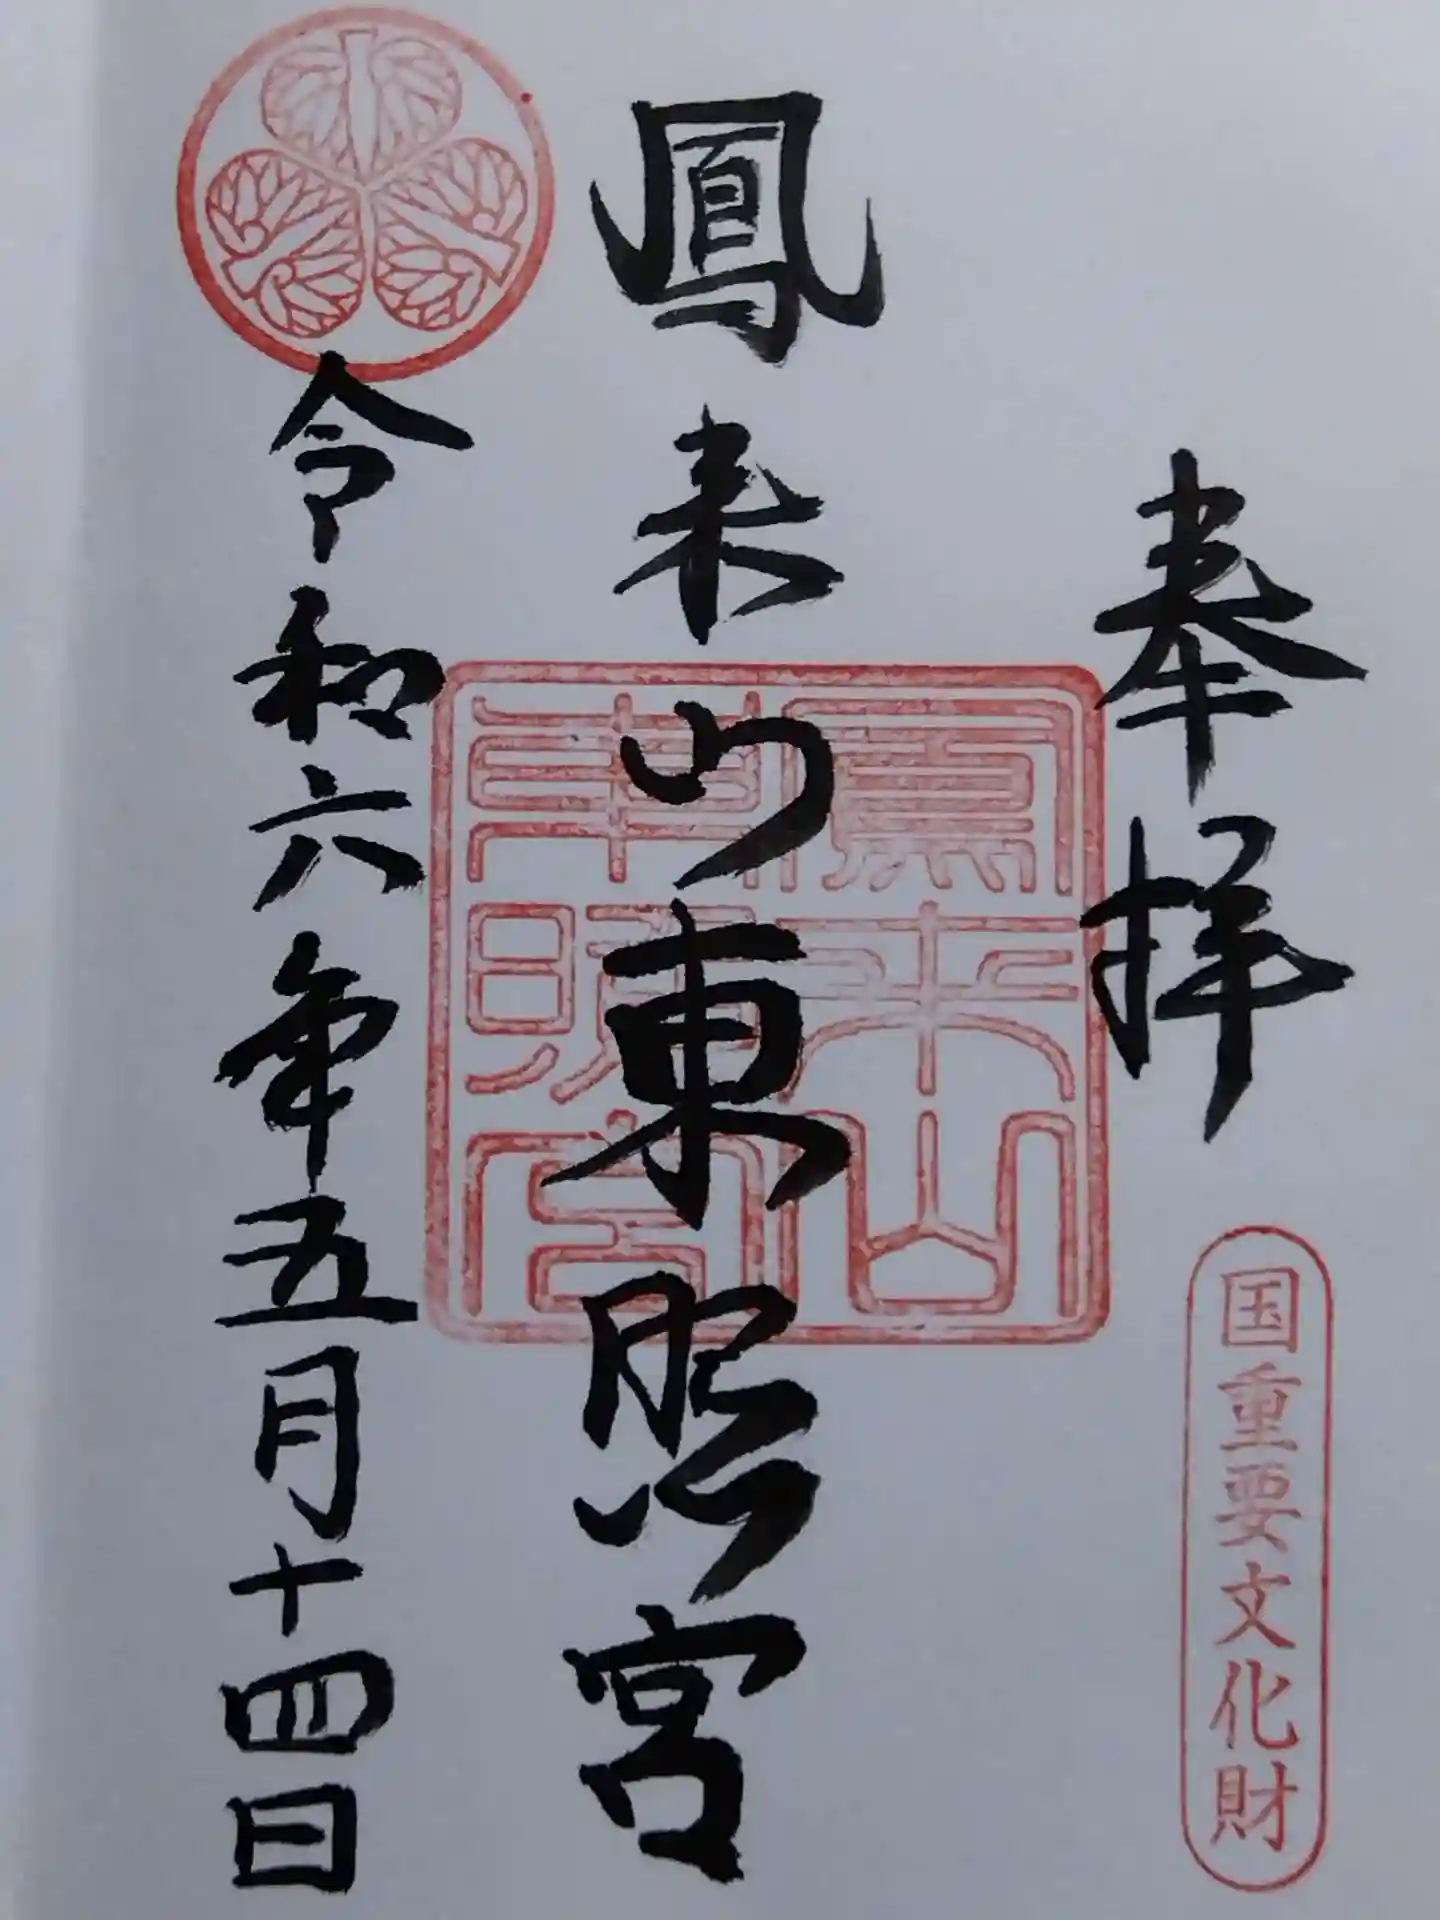 奉拝
国重要文化財
鳳来山東照宮
鳳来山
東照宮
令和六年五月十四日